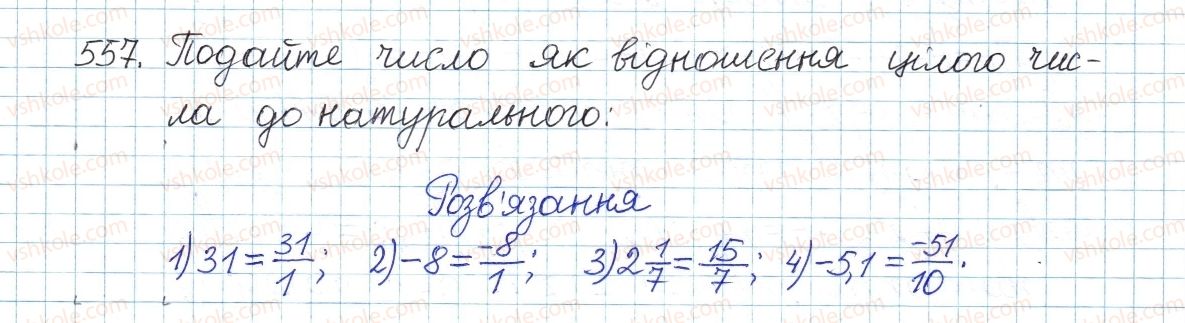 557. Подайте число як відношення цілого чис-
ла до натурального:
Розв'язання
1) 31 = 31/1; 2) -8 = -8/1; 3) 2 1/7 = 15/7; 4) -5,1 = -51/10.